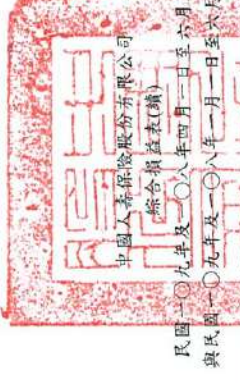 中國人壽保險股份有限公司
綜合損益表(續)
民國一〇九年及一〇八年四月一日至六月
與民國一〇九年及一〇八年一月一日至六月